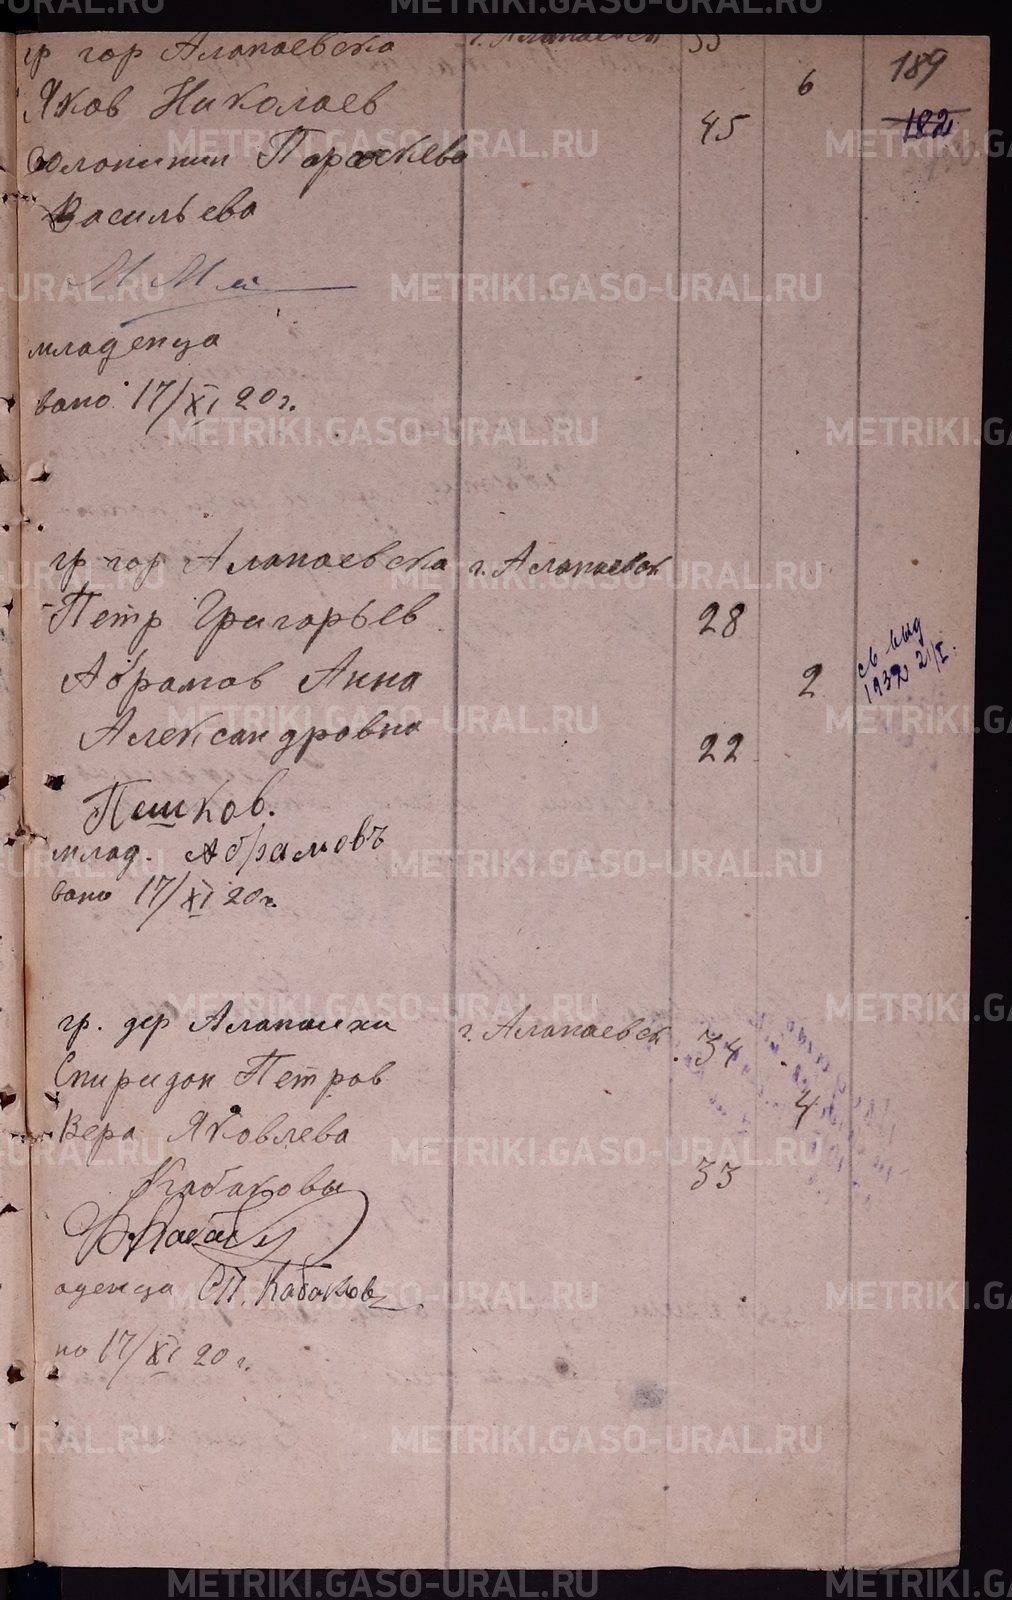 гр гор Алапаевска г. Алапаевск 55
6
189
182
Яков Николаев
45
Солонинин Параскева
Васильева
младенца
вано 17/XI 20 г.
гр гор Алапаевска г. Алапаевск
Петр Григорьев 28
Абрамов Анна 2
св выд
1932 2/I.
Александровна 22
Пешков.
млад. Абрамовъ
вано 17/XI 20 г.
гр. дер Алапаихи г. Алапаевск 34
Спиридон Петров
4
Вера Яковлева
33
Кабаковы
аденца СП. Кабаков
но 17/XI 20 г.
METRIKI.GASO-URAL.RU